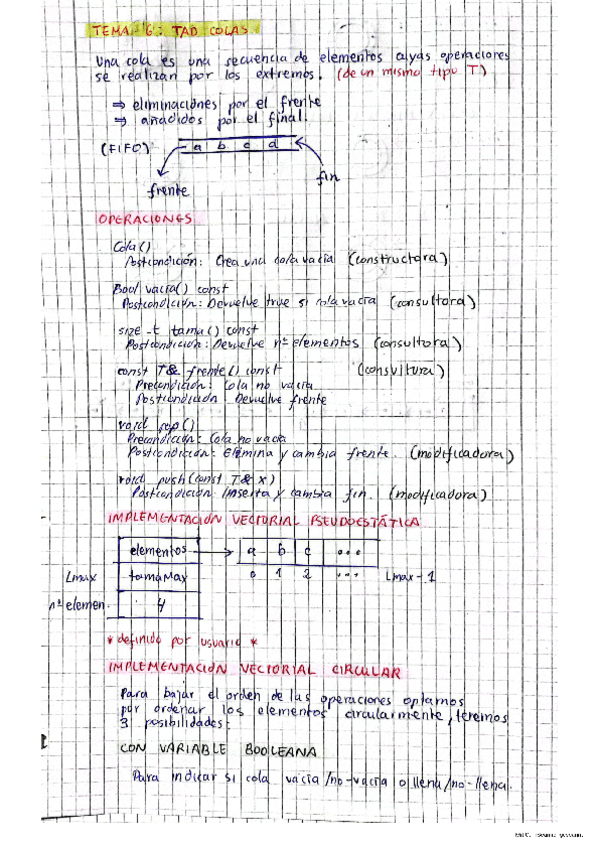 TEMA 6: TAD COLAS
Una cola es una secuencia de elementos cuyas operaciones
se realizan por los extremos. (de un mismo tipo T)
⇒ eliminaciones por el frente
⇒ añadidos por el final.
(FIFO) a b c d
fin
frente
OPERACIONES
Cola()
Postcondición: Crea una cola vacía (constructora)
Bool vacia() const
Postcondición: Devuelve true si cola vacía (consultora)
size_t tama() const
Postcondición: Devuelve nº elementos (consultora)
const T& frente() const (consultora)
Precondición: Cola no vacía
Postcondición Devuelve frente
void pop()
Precondición: Cola no vacía
Postcondición: Elimina y cambia frente. (modificadora)
void push(const T& x)
Postcondición: Inserta y cambia fin. (modificadora)
IMPLEMENTACIÓN VECTORIAL PSEUDOESTÁTICA
elementos → a b c ...
Lmax tamaMax 0 1 2 ... Lmax-1
nº elemen. 4
* definido por usuario *
IMPLEMENTACIÓN VECTORIAL CIRCULAR
Para bajar el orden de las operaciones optamos
por ordenar los elementos circularmente, teremos
3 posibilidades:
CON VARIABLE BOOLEANA
Para indicar si cola vacía/no-vacía o llena/no-llena.